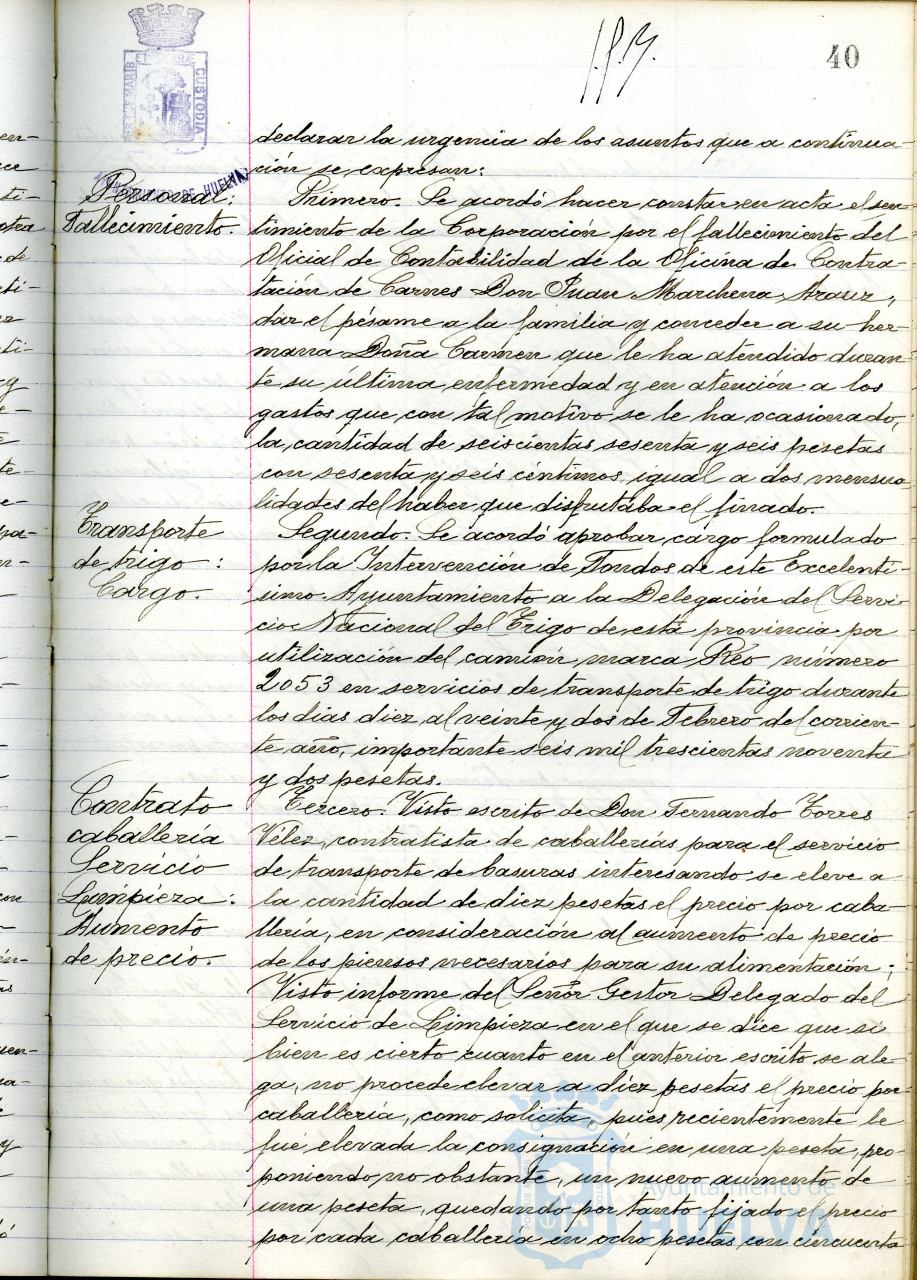 40
declarar la urgencia de los asuntos que a continua-
ción se expresan:
Personal:
Fallecimiento.
Primero. Se acordó hacer constar en acta el sen-
timiento de la Corporación por el fallecimiento del
Oficial de Contabilidad de la Oficina de Contra-
tación de Carnes Don Juan Marchena Arauz,
dar el pésame a la familia y conceder a su her-
mana Doña Carmen que le ha atendido duran-
te su última enfermedad y en atención a los
gastos que con tal motivo se le ha ocasionado,
la cantidad de seiscientas sesenta y seis pesetas
con sesenta y seis céntimos, igual a dos mensua-
lidades del haber que disfrutaba el finado.
Transporte
de trigo:
Cargo.
Segundo. Se acordó aprobar cargo formulado
por la Intervención de Fondos de este Excelentí-
simo Ayuntamiento a la Delegación del Servi-
cio Nacional del Trigo de esta provincia por
utilización del camión marca Reo número
2053 en servicios de transporte de trigo durante
los dias diez al veinte y dos de Febrero del corrien-
te año, importante seis mil trescientas noventa
y dos pesetas.
Contrato
caballería
Servicio
Limpieza:
Aumento
de precio.
Tercero. Visto escrito de Don Fernando Torres
Vélez, contratista de caballerías para el servicio
de transporte de basuras interesando se eleve a
la cantidad de diez pesetas el precio por caba-
llería, en consideración al aumento de precio
de los piensos necesarios para su alimentación;
Visto informe del Señor Gestor Delegado del
Servicio de Limpieza en el que se dice que si
bien es cierto cuanto en el anterior escrito se ale-
ga, no procede elevar a diez pesetas el precio por
caballería, como solicita, pues recientemente le
fué elevada la consignación en una peseta, pro-
poniendo, no obstante, un nuevo aumento de
una peseta, quedando por tanto fijado el precio
por cada caballería en ocho pesetas con cincuenta
Ayuntamiento de
HUELVA